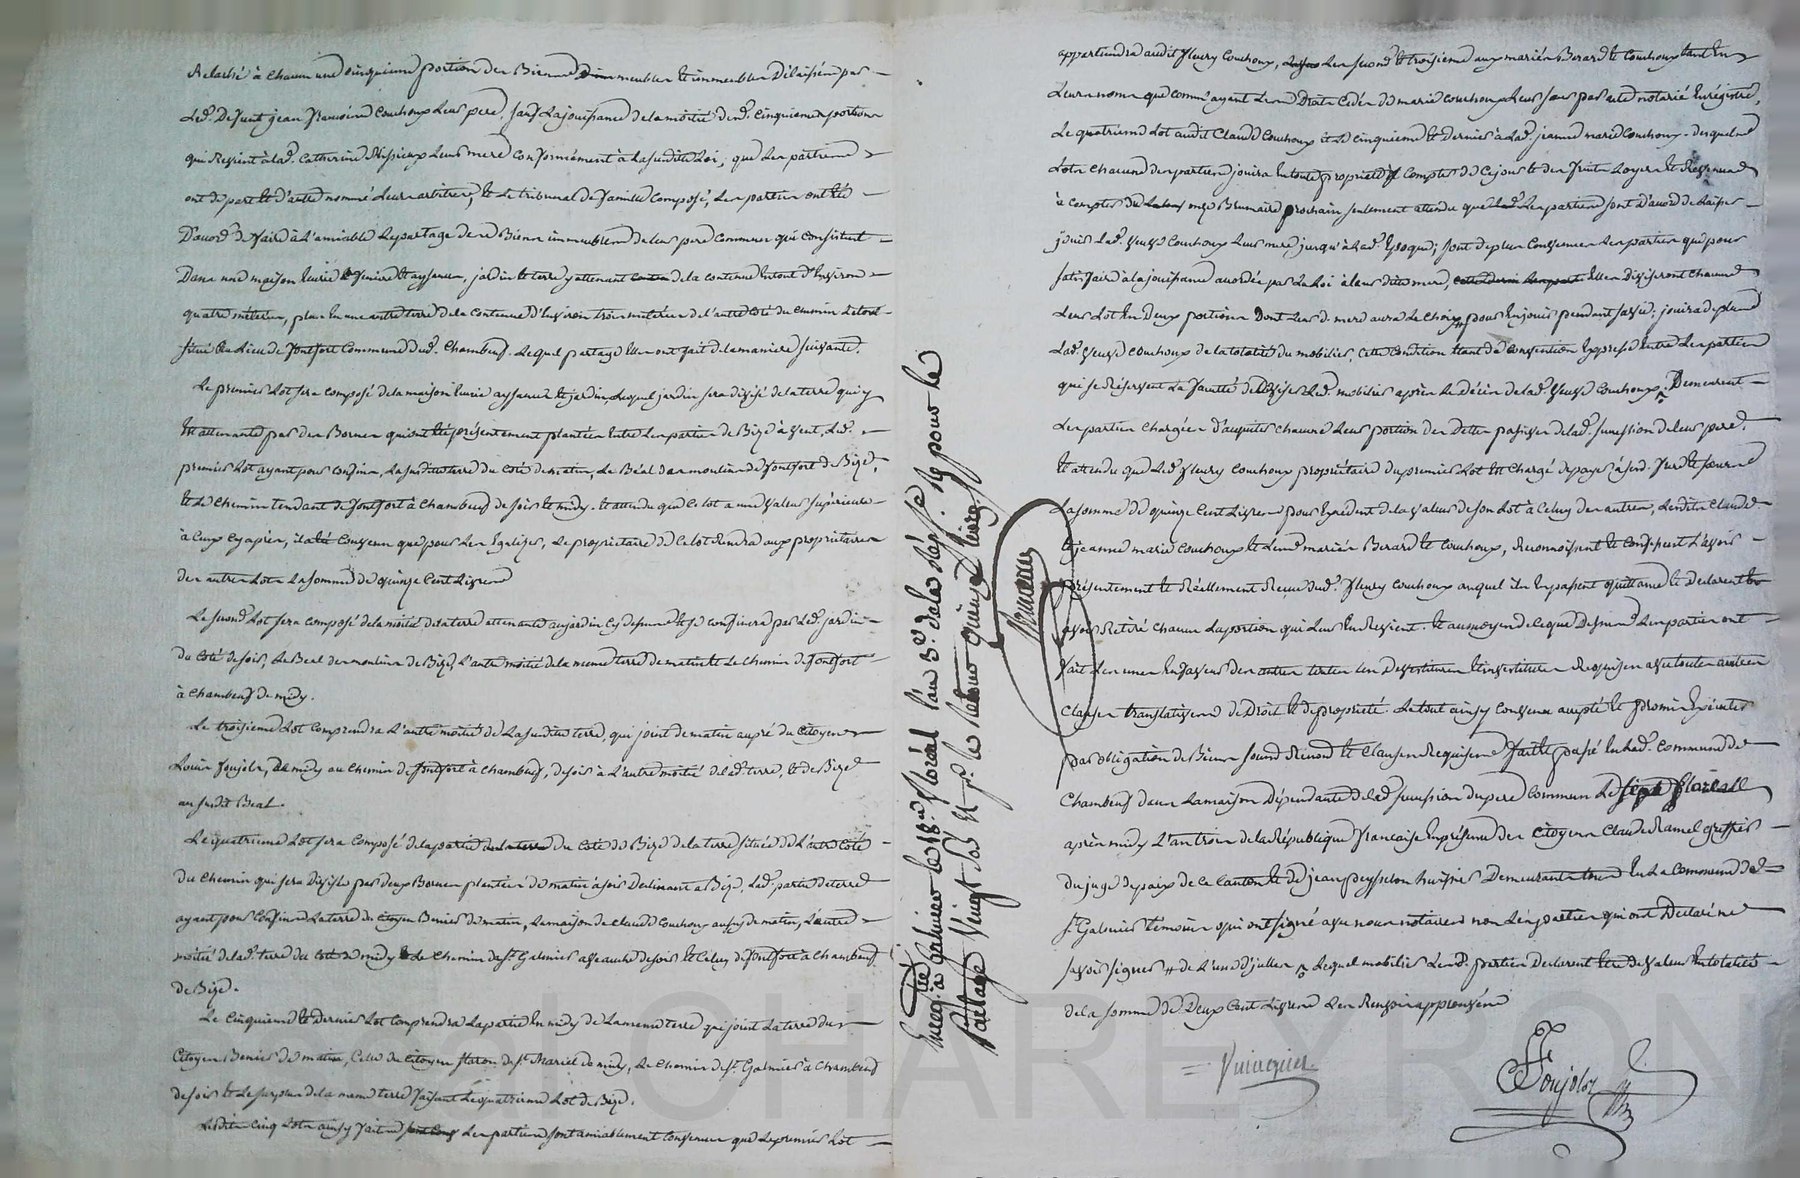 Relaché à chacun une cinquieme portion des Biens meubles et immeubles délaissés par
Led. Defunt jean françois Couchoux Leur pere, sauf La jouissance de la moitié desd. cinquiemes portions
qui Revient à Lad. Catherine Leur mere conformément à La susdite Loi, que Les parties
ont de part et d'autre nommé Leurs arbitres, et Le tribunal de famille composé, Les parties ont été
D'accord de faire à L'amiable Le partage des Biens immeubles de leur pere commun qui consistent
Dans une maison, Ecurie, feniere et aysances, jardin et terre y attenant de la contenue en tout d'Environ
quatre méterées, plus en une autre terre de la contenue d'Environ trois meterées de l'autre coté du chemin Le tout
situé au Lieu de fontfort Commune dud. Chambeuf. Lequel partage Elles ont fait de la maniere suivante.
Le premier Lot sera composé de la maison Ecurie aysances et jardin, Lequel jardin sera divisé de la terre qui y
Est attenante par des Bornes qui ont été présentement plantées entre Les parties de Bize à vent, Led.
premier Lot ayant pour confins, La susdite terre du coté de matin, Le Béal des moulins de fontfort de Bize,
et Le Chemin tendant de fontfort à Chambeuf de soir et midy. et attendu que ce Lot a une valeur supérieure
à Ceux cy après, il a été Convenu que pour Les Egaliser, Le propriétaire de ce Lot Rendra aux propriétaires
des autres Lots La somme de quinze Cent Livres
Le second Lot sera composé de la moitié de la terre attenante au jardin cy dessus et se confinera par Led. jardin
du coté de soir, Le Béal des moulins de Bize, L'autre moitié de la meme terre de matin et Le chemin de fontfort
à Chambeuf de midy.
Le troisieme Lot comprendra L'autre moitié de La susdite terre, qui joint de matin au pré du Citoyen
Louis foujols, de midy au chemin de fontfort à Chambeuf, de soir à L'autre moitié de lad. terre, et de Bize
au susdit Béal.
Le quatrieme Lot sera composé de la partie du coté de Bize de la terre située de L'autre coté
du chemin qui sera divisée par deux Bornes plantées de matin à soir declinant à Bize, Lad. partie de terre
ayant pour Confins La terre du citoyen Benier de matin, La maison de Claude Couchoux aussy de matin, L'autre
moitié de lad. terre du coté de midy et Le Chemin de St. Galmier à de soir et Celuy de fontfort à Chambeuf
de Bize.
Le Cinquieme et Dernier Lot comprendra La partie En midy de La meme terre qui joint La terre du
Citoyen Benier de matin, Celle du Citoyen de midy, Le Chemin de St. Galmier à Chambeuf
de soir et Le surplus de la meme terre faisant Le quatrieme Lot de Bize.
Lesdits Cinq Lots ainsy faits Les parties sont amiablement convenues que Le premier Lot
Enreg. à Galmier le 18e. floréal l'an 3e. de la Rép.
partage Vingt
appartiendra audit fleury Couchoux, Les second et troisieme aux mariés Berard et Couchoux tant En
Leurs noms que comme ayant Les Droits Cedés de marie Couchoux Leur sœur par acte notarié Enrégistré,
Le quatrieme Lot audit Claude Couchoux et Le cinquieme et dernier à Lad. jeanne marie Couchoux. desquels
Lots Chacune des parties jouira En toute propriété à Compter de Ce jour et des fruits Loyers et Revenus
à compter du onze Brumaire prochain seulement attendu que Les parties sont d'accord de Laisser
jouir Lad. veuve Couchoux Leur mere jusqu'à Lad. Epoque; sont de plus Convenues Les parties que pour
satisfaire à la jouissance accordée par La Loi à leur dite mere, Elles Diviseront Chacune
Leur Lot En Deux portions Dont Leurd. mere aura Le Choix pour En jouir pendant sa vie; jouira de plus
Lad. veuve Couchoux de la totalité du mobilier, cette condition Etant de convention Expresse Entre Les parties
qui se Réservent La faculté de Diviser Led. mobilier après Le Décès de lad. veuve Couchoux. Demeurent
Les parties Chargées d'acquiter Chacune Leur portion des Dettes passives de lad. succession de leur pere.
et attendu que Led. fleury Couchoux propriétaire du premier Lot Est Chargé de payer à ses d. frere et sœurs
La somme de quinze Cent Livres pour Excédent de la valeur de son Lot à Celuy des autres, Lesdits Claude
et jeanne marie Couchoux et Lesd. mariés Berard et Couchoux, Reconnoissent et Confessent L'avoir
présentement et Réellement Reçue dud. fleury Couchoux auquel ils En passent quittance et Declarent
avoir Retiré Chacun La portion qui Leur En Revient. Et au moyen de ce que Dessus Les parties ont
fait Les unes En faveur des autres toutes Les Devestitures Et investitures Requises avec toutes autres
Clauses translatives de Droit et de propriété. Le tout ainsy convenu accepté et promis Exécuter
par obligation de Biens soumd. Renond. et Clauses Requises fait et passé En lad. Commune de
Chambeuf dans La maison Dépendante de lad. succession du pere commun Le sept floreal
après midy L'an trois de la République française En présence des Citoyens Claude Ramel greffier
du juge de paix de ce Canton et de jean peysselon huissier Demeurants tous En La Commune de
St. Galmier témoins qui ont signé avec nous notaires non Les parties qui ont Déclaré ne
savoir signer de L'une d'Elles Lequel mobilier Lesd. parties Declarent être de valeur En totalité
de la somme de Deux Cent Livres Les Renvois approuvés
foujols
CHAREYRON